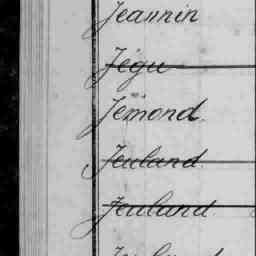 Jeannin
Jégu
Jémond
Jeuland
Jeuland